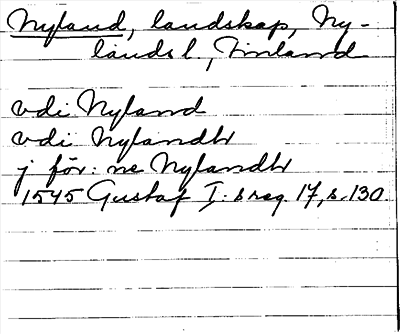 Nyland, landskap, Ny-
lands l, Finland
vdi Nyland
vdi Nylandh
j för: ne Nylandh
1545 Gustaf I: s reg. 17, s. 130.